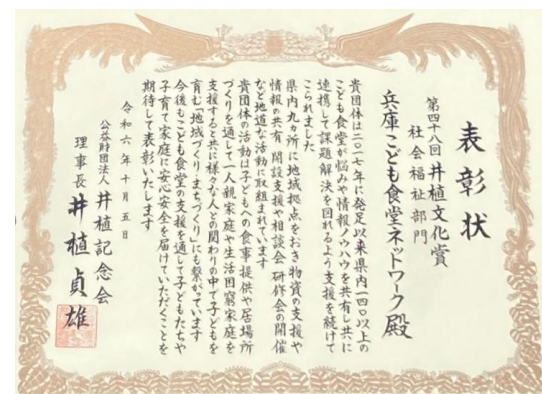 表彰状
第四十八回 井植文化賞
社会福祉部門
兵庫こども食堂ネットワーク 殿
貴団体は二〇一七年に発足以来県内一四〇以上の
こども食堂が悩みや情報ノウハウを共有し共に
連携して課題解決を図れるよう支援を続けて
こられました
県内九カ所に地域拠点をおき物資の支援や
情報の共有 開設支援や相談会 研修会の開催
など地道な活動に取組まれています
貴団体の活動は子どもへの食事提供や居場所
づくりを通して一人親家庭や生活困窮家庭を
支援すると共に様々な人との関わりの中で子どもを
育む「地域づくりまちづくり」にも繋がっています
今後もこども食堂の支援を通して子どもたちや
子育て家庭に安心安全を届けていただくことを
期待して表彰いたします
令和六年十月五日
公益財団法人 井植記念会
理事長 井植貞雄